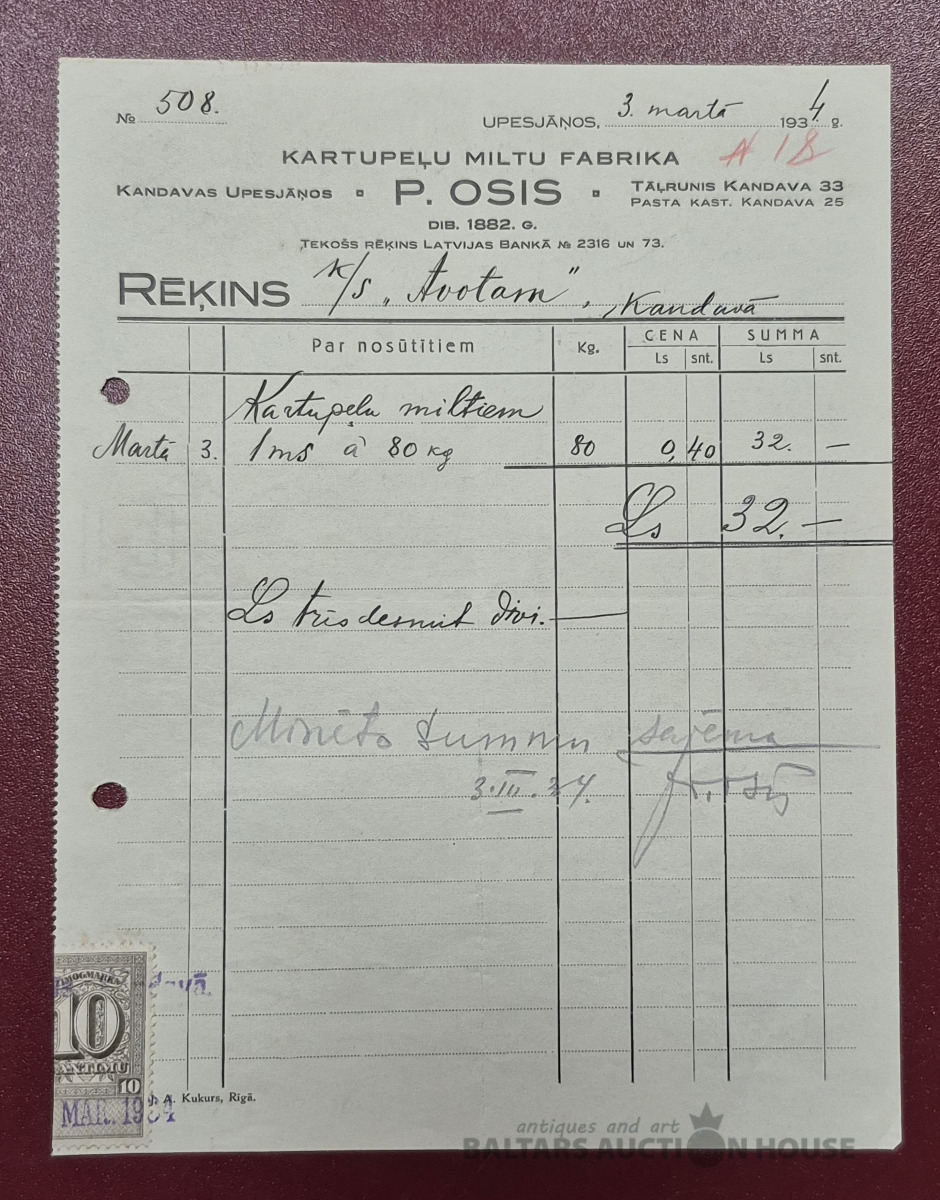 № 508.
UPESJĀŅOS, 3. martā 1934 g.
N 18
KARTUPEĻU MILTU FABRIKA
KANDAVAS UPESJĀŅOS P. OSIS TĀĻRUNIS KANDAVA 33
PASTA KAST. KANDAVA 25
DIB. 1882. G.
TEKOŠS RĒĶINS LATVIJAS BANKĀ № 2316 UN 73.
RĒĶINS k/s „Avotam”, Kandavā
Par nosūtītiem Kg. CENA SUMMA
Ls snt. Ls snt.
Kartupeļu miltiem
Martā 3. 1 ms à 80 kg 80 0,40 32. —
Ls 32. —
Ls trīsdesmit divi. —
Minēto summu saņēma
3.III.34. P. Osis
ZĪMOGMARKA
davā.
10
SANTIMU
10
MAR. 1934
A. Kukurs, Rīgā.
antiques and art
BALTARS AUCTION HOUSE